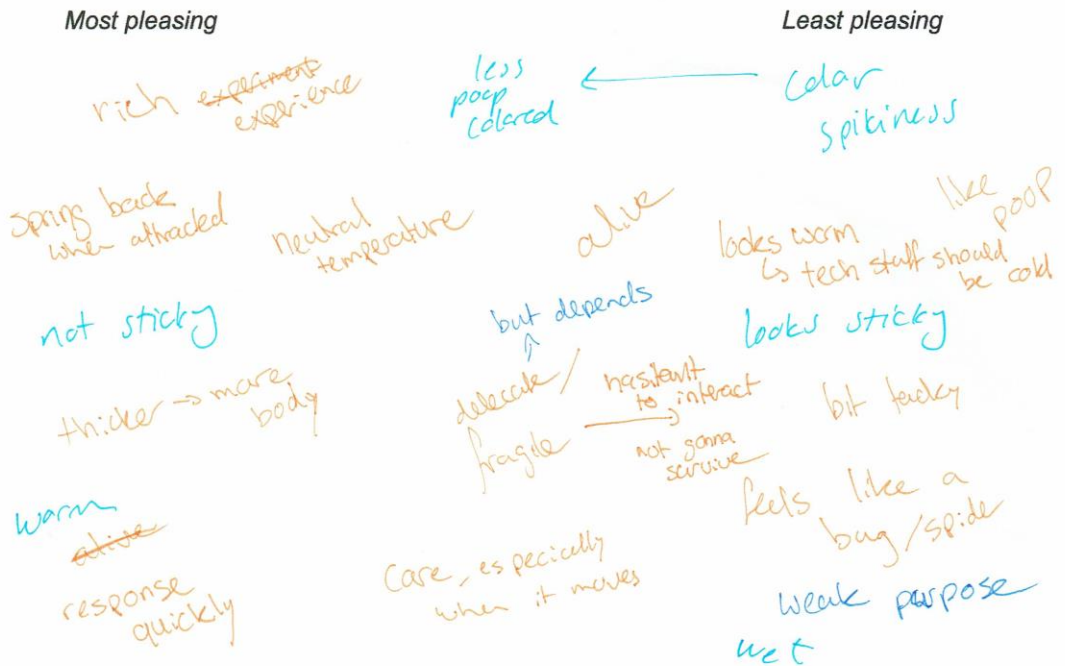 Most pleasing
Least pleasing
rich experiment
experience
less
poop
colored
Color
spikiness
spring back
when attracted
neutral
temperature
alive
like
poop
looks worm
↳ tech stuff should
be cold
not sticky
but depends
looks sticky
thicker → more
body
delecate/
fragile
hasitent
to interact
not gonna
survive
bit tacky
feels like a
bug/spide
warm
alive
response
quickly
Care, especically
when it moves
weak purpose
wet